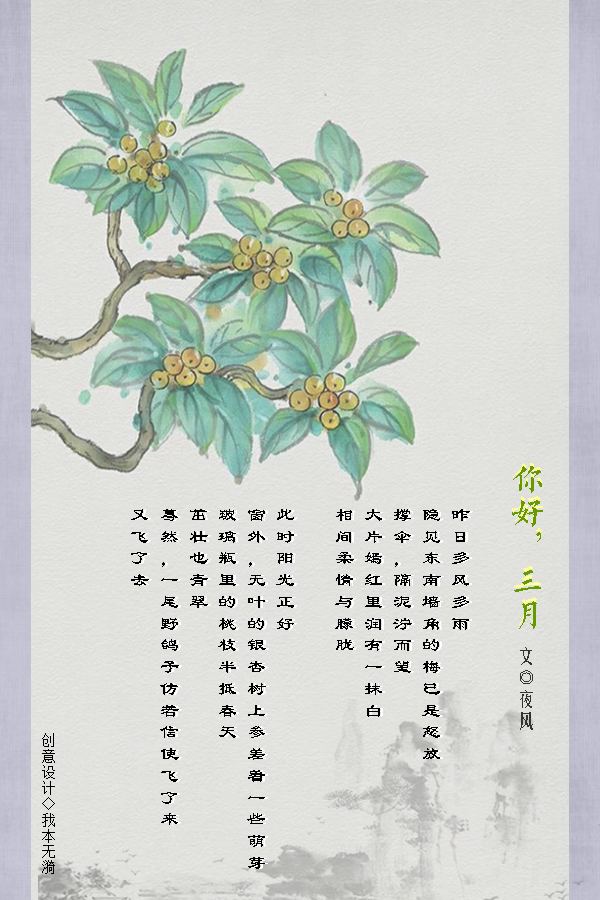 你好，三月
文◎夜风
昨日多风多雨
隐见东南墙角的梅已是怒放
撑伞，隔泥泞而望
大片嫣红里润有一抹白
相间柔情与朦胧
此时阳光正好
窗外，无叶的银杏树上参差着一些萌芽
玻璃瓶里的桃枝半抵春天
茁壮也青翠
蓦然，一尾野鸽子仿若信使飞了来
又飞了去
创意设计◇我本无漪